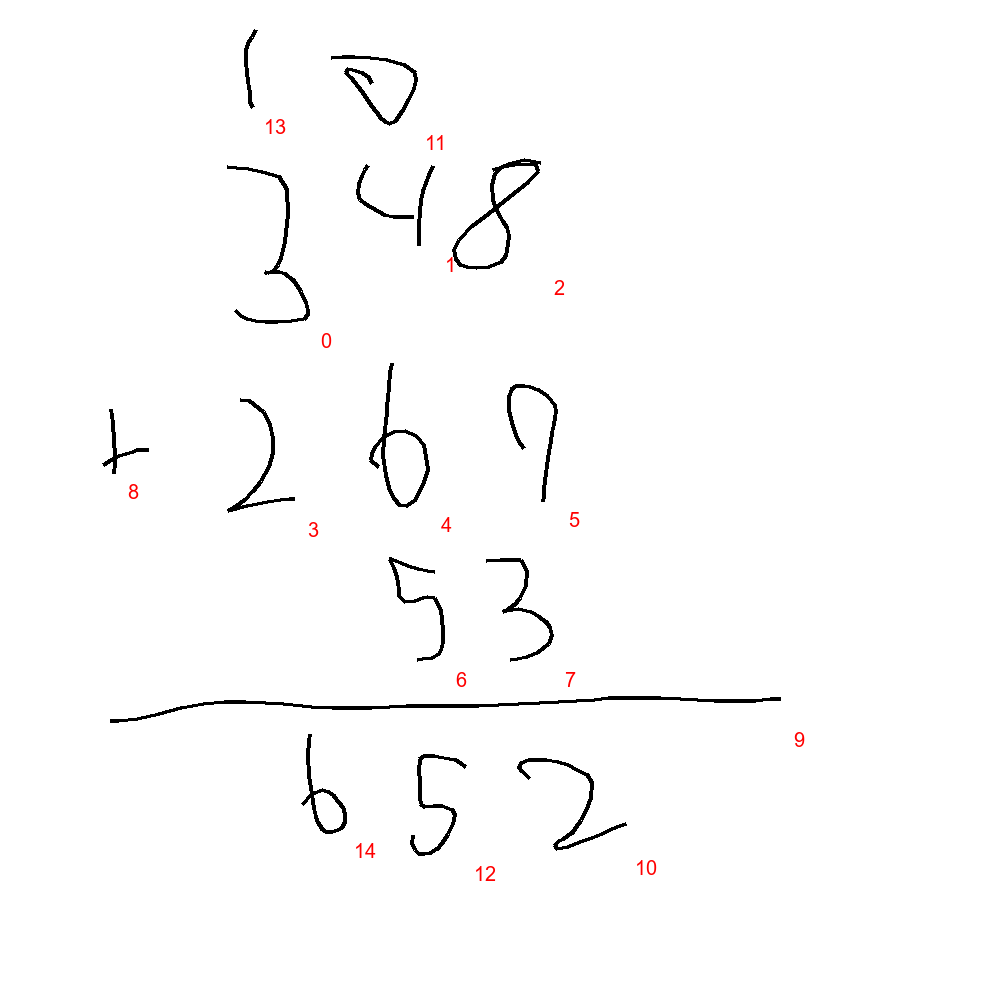 1 0
13 11
3 4 8
0 1 2
+ 2 6 9
8 3 4 5
5 3
6 7
9
6 5 2
14 12 10